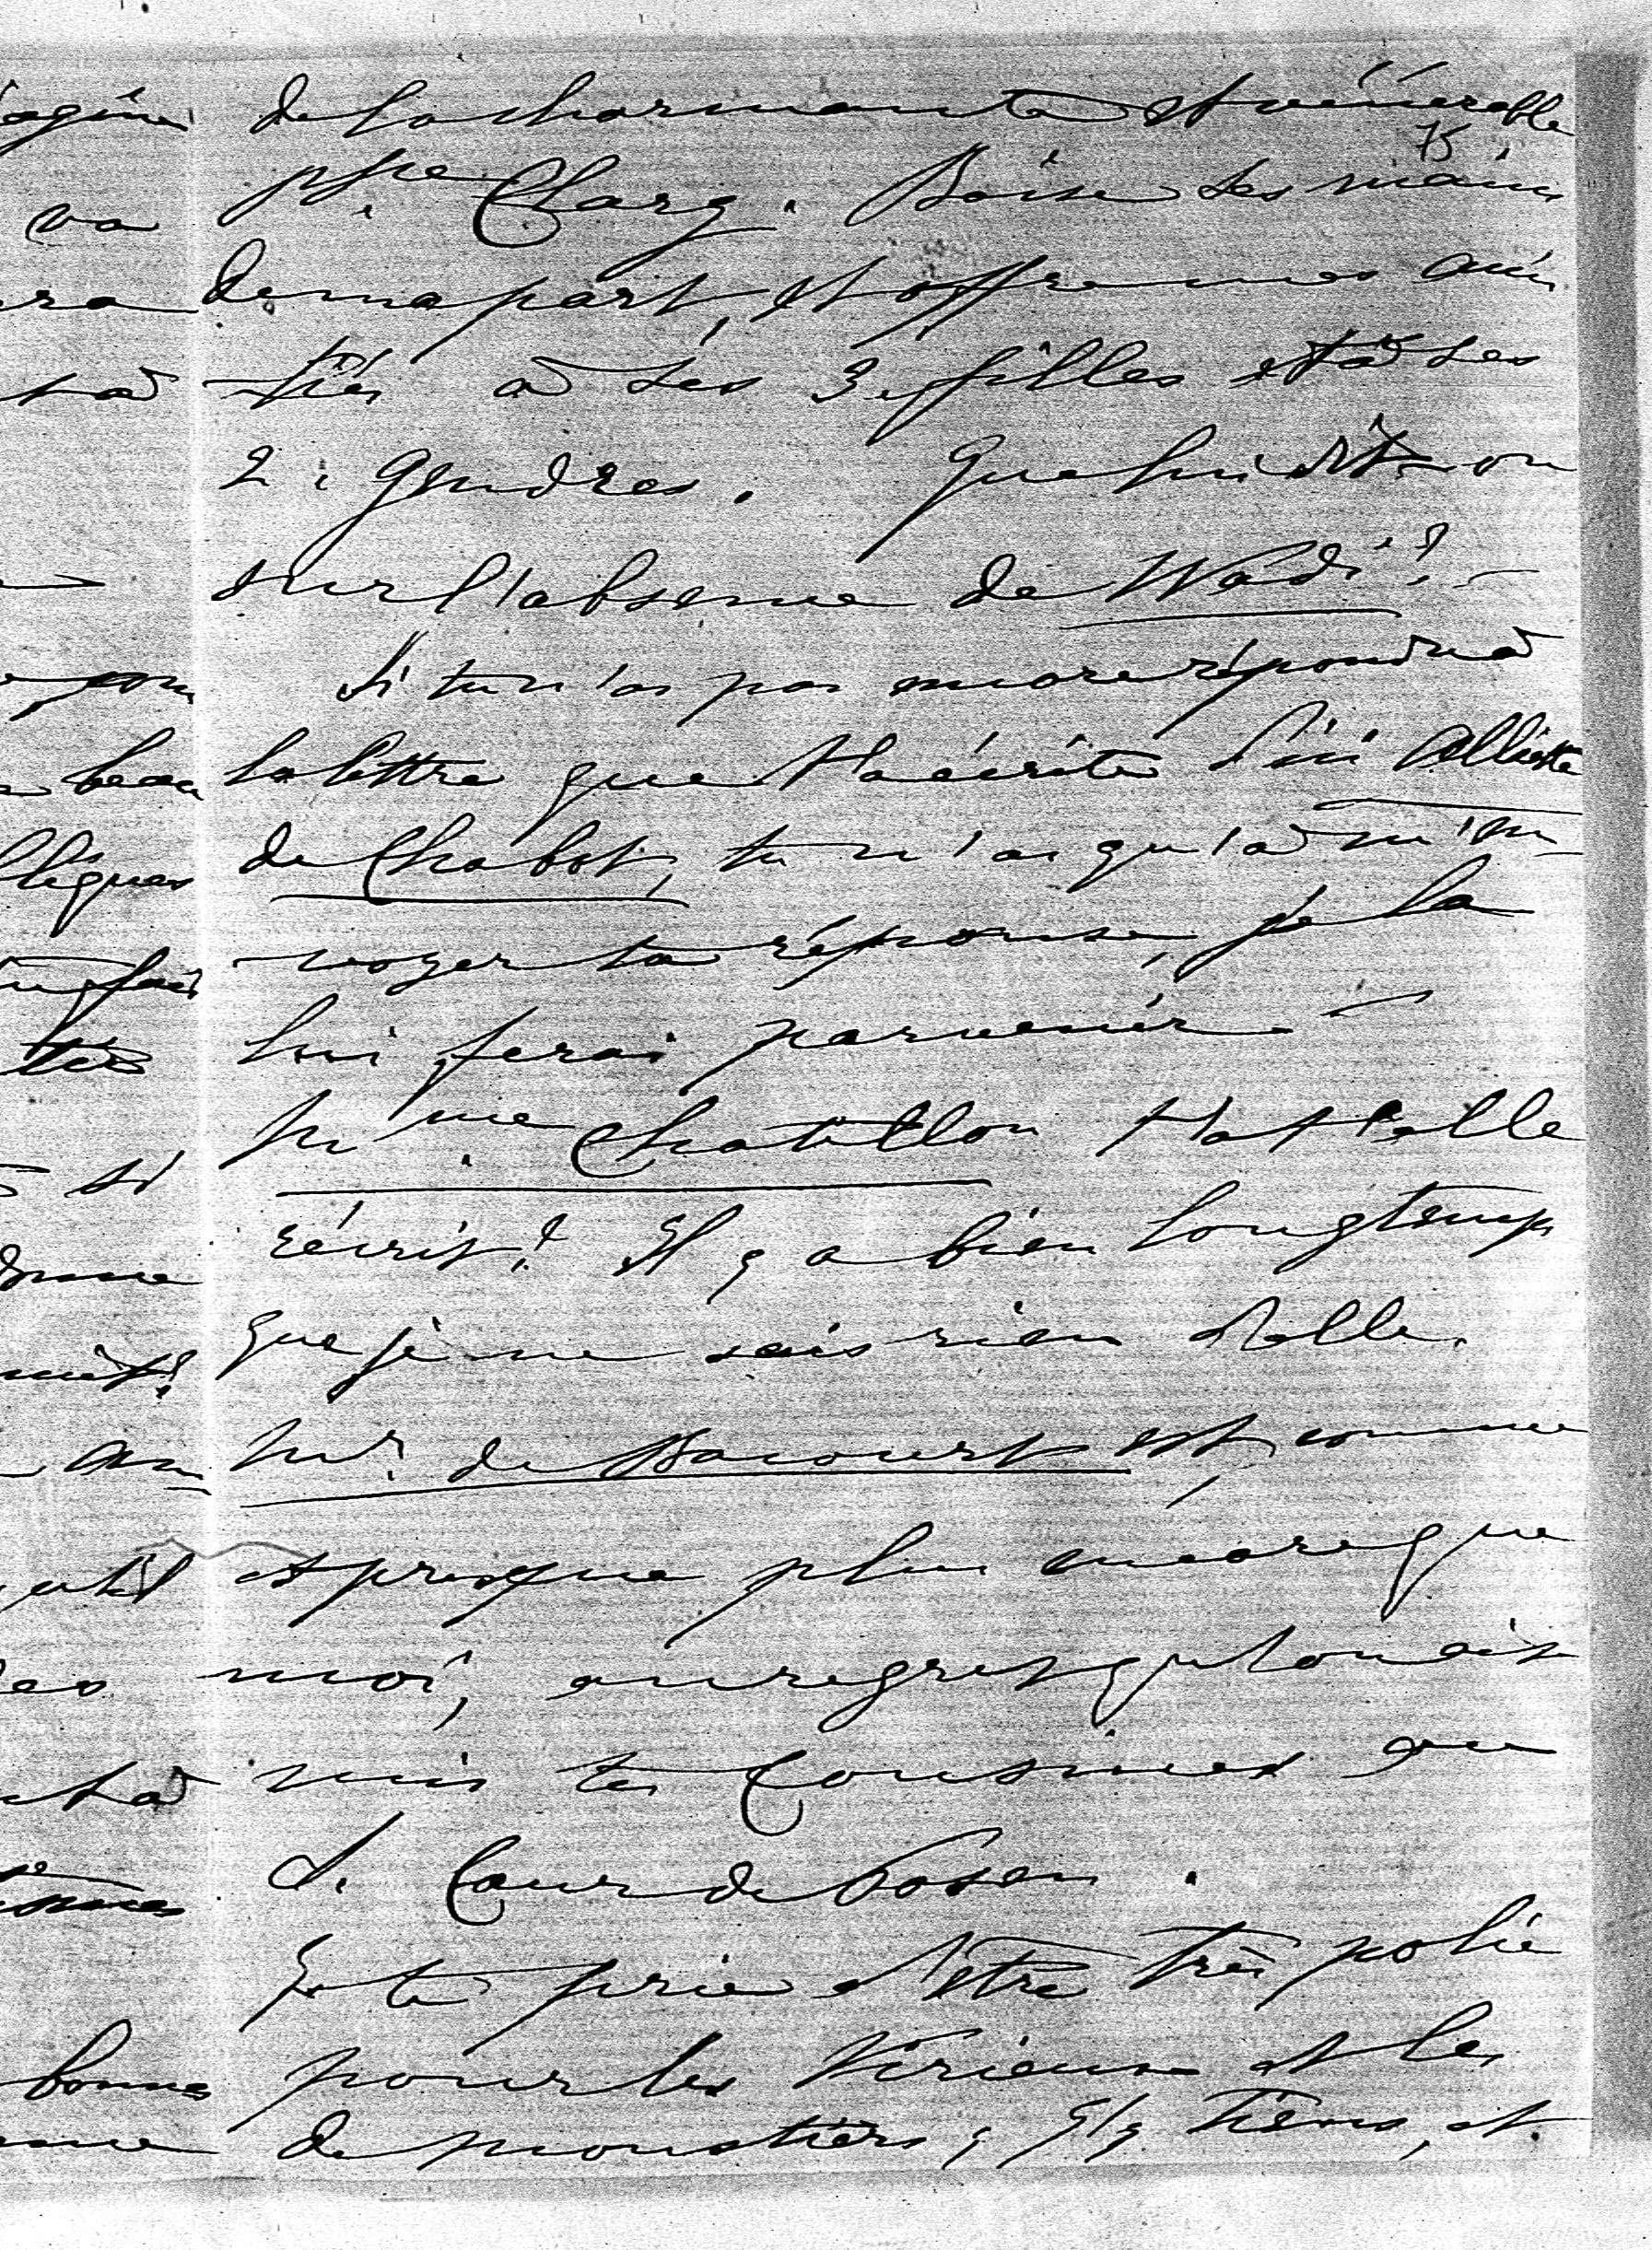 de la charmante et vénérable
75
psse Clary. Baise ses mains
de ma part, et offre mes ami
tiés à ses 3 filles et à ses
2 gendres. Que lui dit-on
sur l'absence de Wadi? -
Si tu n'as pas encore répondu à
la lettre que t'a écrite d'ici Alliette
de Chabot, tu n'as qu'à m'en
voyer ta réponse, je la
lui ferai parvenir -
Mme Chatillon t'a t'elle
récrit? Il y a bien longtemps
que je ne sais rien d'elle.
Mr. de Bacourt est, comme
et presque plus encore que
moi, au regret qu'on ait
mis tes Cousines en
d. Cour de Posen.
Je te prie d'être très polie
pour les Virieux et les
de Moustiers; j'y tiens, et
ra
va
beau
lignes
si
bonne